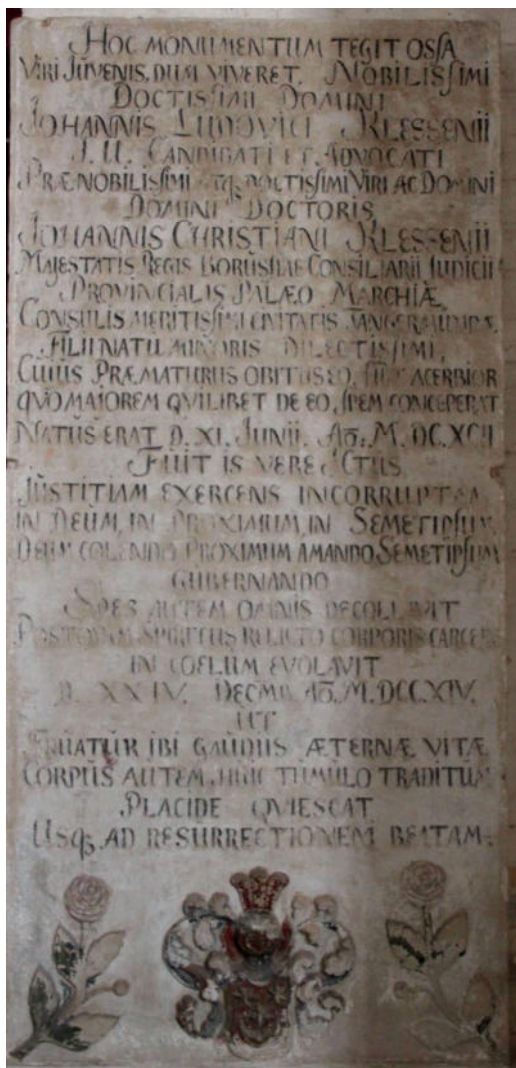 HOC MONUMENTUM TEGIT OSSA
VIRI JUVENIS, DUM VIVERET, NOBILISSIMI
DOCTISSIMI DOMINI
JOHANNIS LUDOVICI KLESSENII
J. U. CANDIDATI ET ADVOCATI
PRÆNOBILISSIMI ATQ DOCTISSIMI VIRI AC DOMINI
DOMINI DOCTORIS
JOHANNIS CHRISTIANI KLESSENII
MAJESTATIS REGIS BORUSSIAE CONSILIARII JUDICII
PROVINCIALIS PALÆO MARCHIÆ
CONSULIS MERITISSIMI CIVITATIS TANGERMUNDÆ
FILII NATU MINORIS DILECTISSIMI,
CUIUS PRÆMATURUS OBITUS EO, ACERBIOR
QVO MAIOREM QVILIBET DE EO, SPEM CONCEPERAT
NATUS ERAT D. XI. JUNII. Aō. M. DC. XCII
FUIT IS VERE JCTUS
JUSTITIAM EXERCENS INCORRUPTAM
IN DEUM, IN PROXIMUM, IN SEMETIPSUM
DEUM COLENDO PROXIMUM AMANDO SEMETIPSUM
GUBERNANDO
SPES AUTEM OMNIS DECOLLAVIT
POSTQVAM SPIRITUS RELICTO CORPORIS CARCERE
IN COELUM EVOLAVIT
D. XXIV. DECMB. Aō. M.DCCXIV.
UT
FRUATUR IBI GAUDIIS ÆTERNÆ VITÆ
CORPUS AUTEM HUIC TUMULO TRADITUM
PLACIDE QVIESCAT
USQ AD RESURRECTIONEM BEATAM.